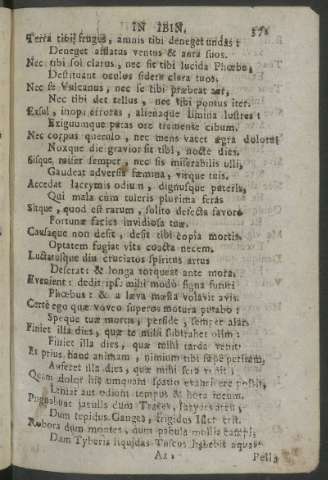 IN IBIN. 371
Terra tibi fruges, amnis tibi deneget undas:
Deneget afflatus ventus & aura suos.
Nec tibi sol clarus, nec sit tibi lucida Phœbe,
Destituant oculos sidera clara tuos.
Nec se Vulcanus, nec se tibi præbeat aer,
Nec tibi det tellus, nec tibi pontus iter.
Exsul, inops erreres, alienaque limina lustres:
Exiguumque petas ore tremente cibum.
Nec corpus querulo, nec mens vacet ægra dolore:
Noxque die gravior sit tibi, nocte dies.
Sisque miser semper, nec sis miserabilis ulli,
Gaudeat adversis fœmina, virque tuis.
Accedat lacrymis odium, dignusque puteris,
Qui mala cum tuleris plurima feras
Sitque, quod est rarum, solito defecta favore
Fortunæ facies invidiosa tuæ.
Causaque non desit, desit tibi copia mortis.
Optatem fugiat vita coacta necem.
Luctatusque diu cruciatos spiritus artus
Deserat: & longa torqueat ante mora.
Evenient: dedit ipse mihi modo signa futuri
Phœbus: & a læva mœsta volavit avis.
Certe ego quæ voveo superos motura putabo:
Speque tuæ mortis, perfide, semper alar.
Finiet illa dies, quæ te mihi subtrahet olim:
Finiet illa dies, quæ mihi tarda venit:
Et prius hanc animam, nimium tibi sæpe petitam,
Auferet illa dies, quæ mihi sera venit:
Quam dolor hic umquam spatio evanescere possit,
Leniat aut odium tempus & hora meum.
Pugnabunt jaculis dum Thraces, Iazyges arcu,
Dum tepidus Ganges, frigidus Ister erit.
Robora dum montes, dum pabula mollia campi,
Dum Tyberis liquidas Tuscus habebit aquas
Aa 2 Pella